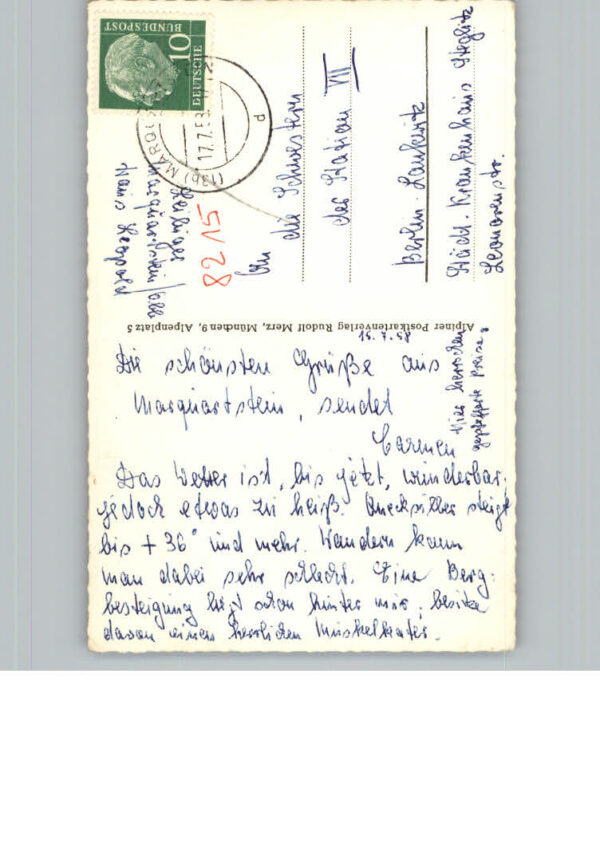 DEUTSCHE
BUNDESPOST
10
(13b) MARQU
17.7.5
d
Haus Leopold
Marquartstein/Obb
8215
An
die Schwestern
der Station VII
Berlin-Lankwitz
Städt. Krankenhaus Steglitz
Leonorenstr.
Alpiner Postkartenverlag Rudolf Merz, München 9, Alpenplatz 5
Die schönsten Grüße aus
Marquartstein, sendet
Carmen
Hier herrschen
gepfefferte Preise
Das Wetter ist, bis jetzt, wunderbar,
jedoch etwas zu heiß. Quecksilber steigt
bis + 36° und mehr. Wandern kann
man dabei sehr schlecht. Eine Berg-
besteigung liegt schon hinter mir, besitze
davon einen herrlichen Muskelkater.